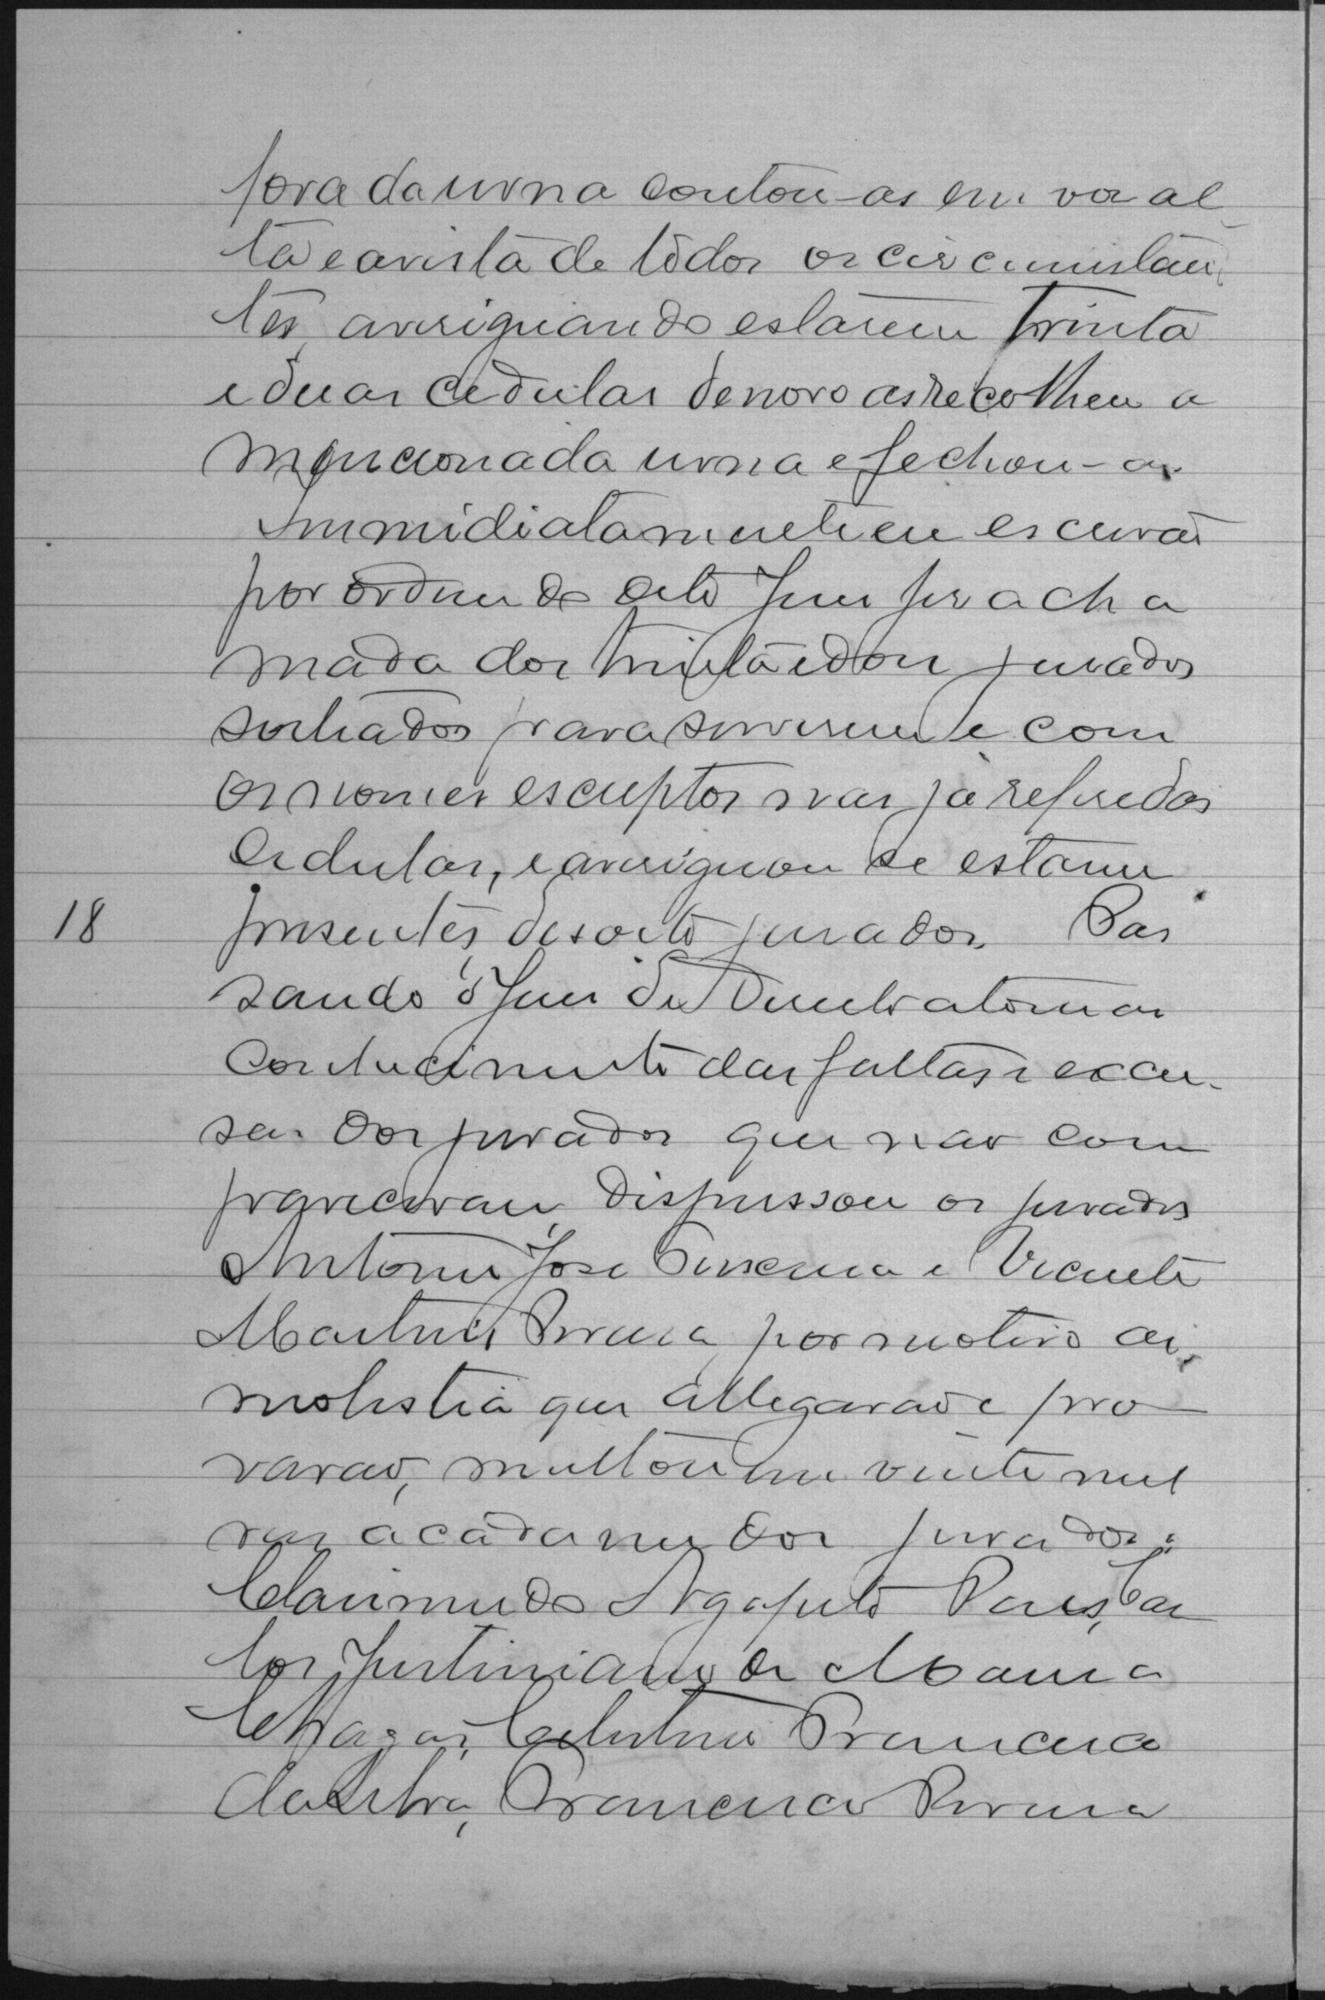 fora da urna contou-as em voz al
ta e a vista de todos os circumstan
tes, averiguando estarem trinta
e duas cedulas de novo as recolheu a
mencionada urna e fechou-a.
Immidiatamente eu escrivão
por ordem do dito Juiz fiz a cha
mada dos trinta e dous jurados
sorteados para servirem e com
os nomes escriptos nas já referidas
cedulas, e averiguou se estarem
18 presentes desoito jurados. Pas
sando o Juiz de Direito a tomar
conhecimento das faltas e excu-
sas dos jurados que não com
pareceram, dispensou os jurados
Antonio José e Vicente
Martins Pereira por motivo de
molestia que allegarão e pro
varão, multou em vinte mil
reis a cada um dos jurados:
Clarimundo Agapito Paes, Car
los Justiniano de
Chagas, Celestino Francisco
da Silva, Francisco Pereira